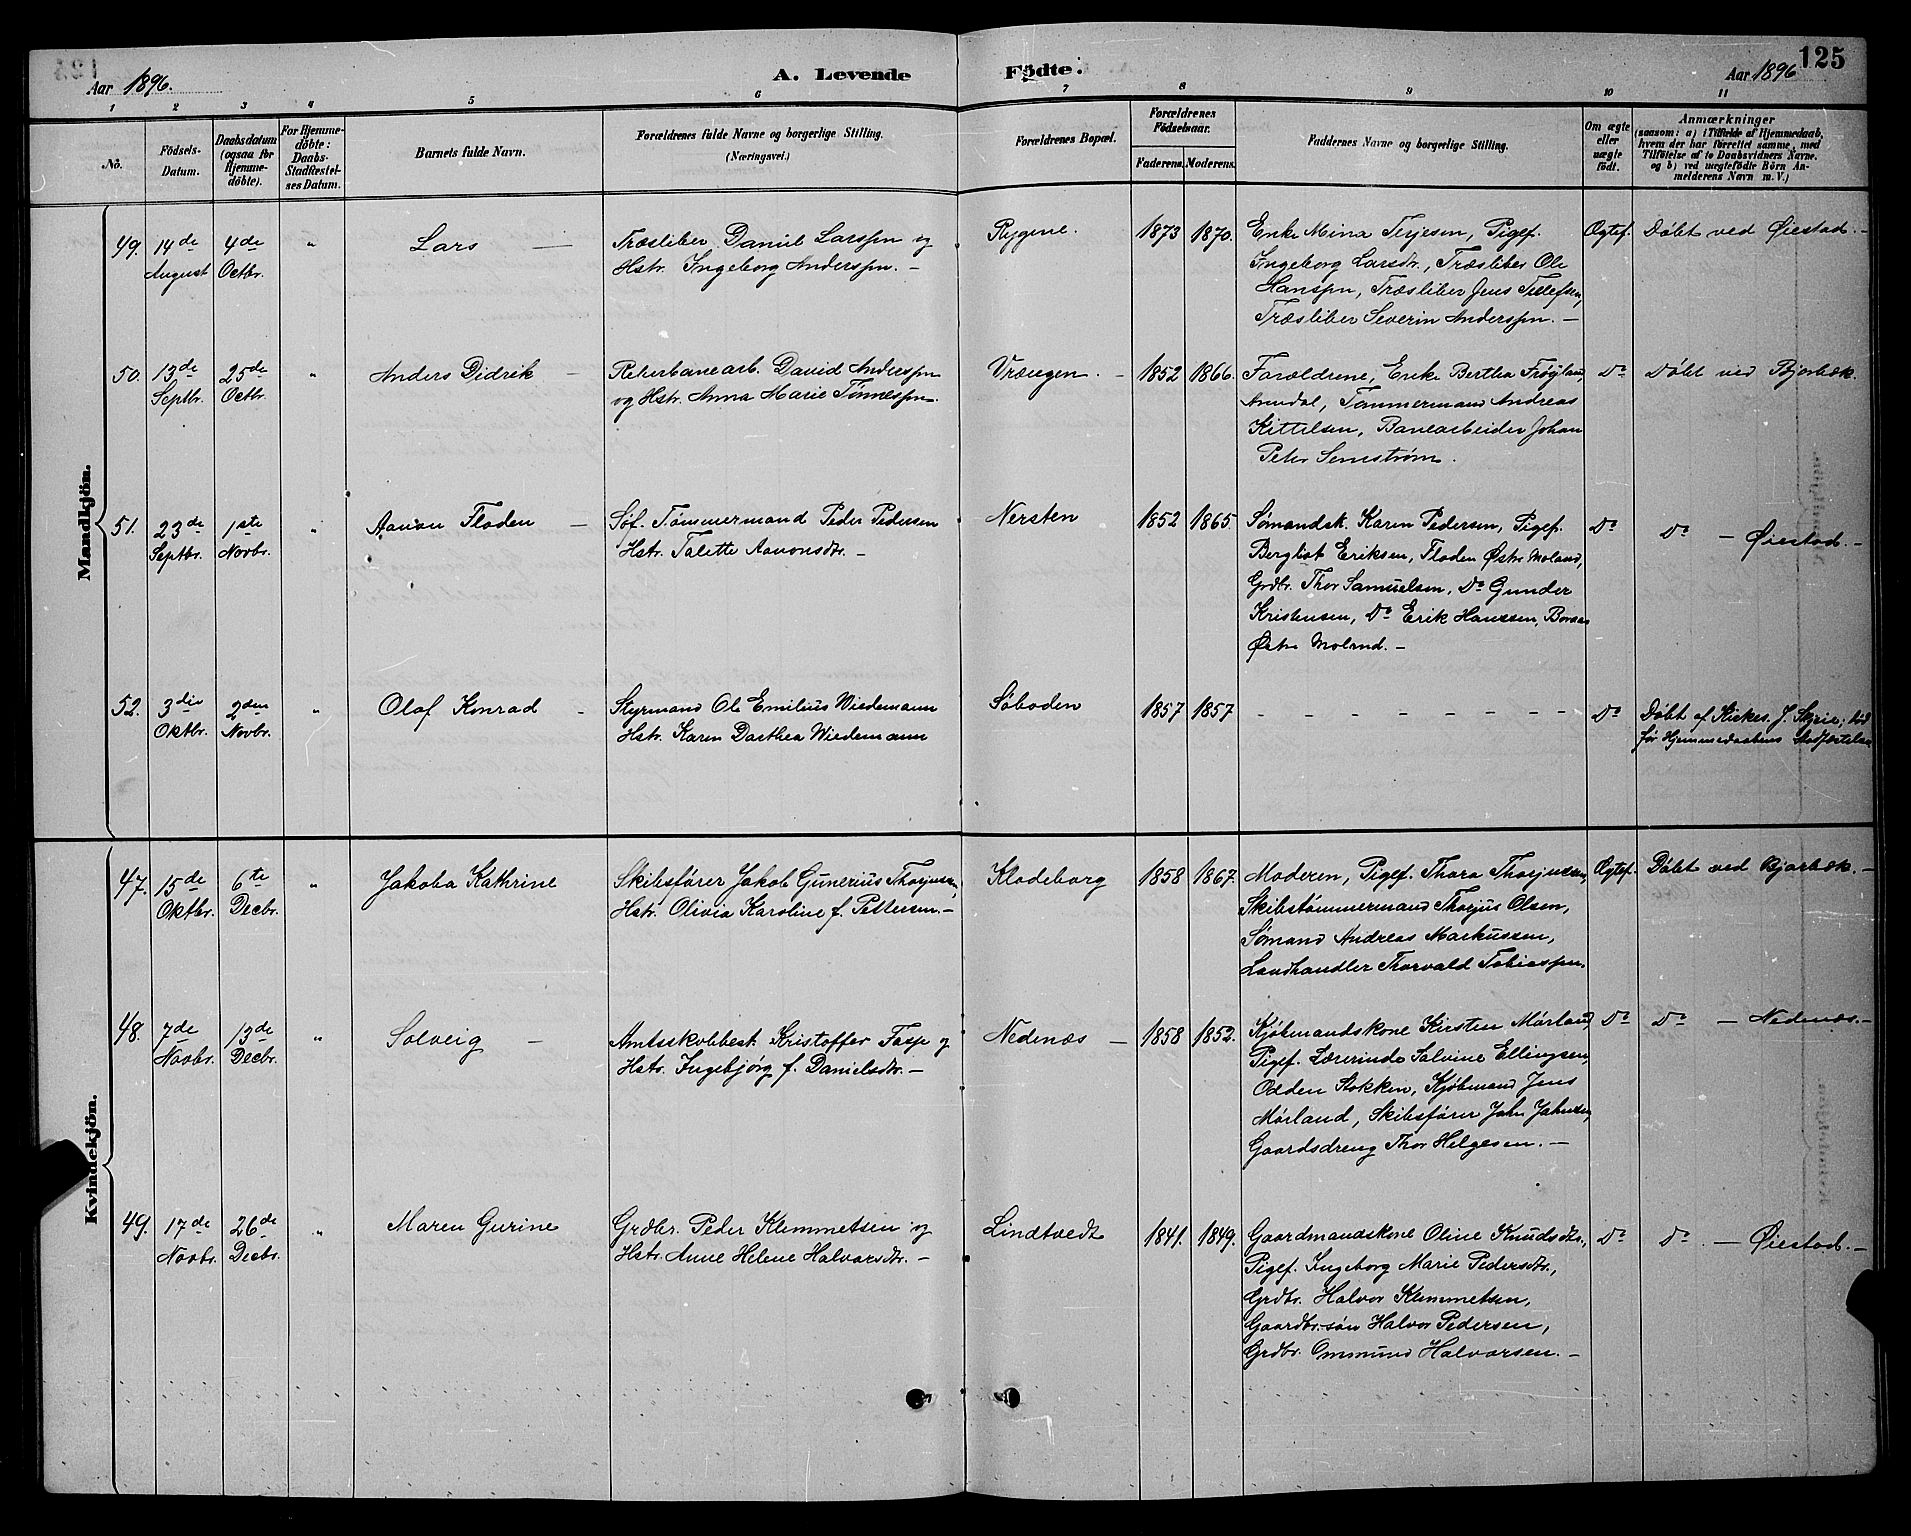 125
Aar 1896.
A. Levende Födte.
Aar 1896
1 2 3 4 5 6 7 8 9 10 11
No.
Födsels-
Datum.
Daabsdatum
(ogsaa for
Hjemme-
döbte).
For Hjemme-
döbte:
Daabs-
Stadfæstel-
ses Datum.
Barnets fulde Navn.
Forældrenes fulde Navne og borgerlige Stilling.
(Næringsvei.)
Forældrenes Bopæl.
Forældrenes
Födselsaar.
Faderens. Moderens.
Faddernes Navne og borgerlige Stilling.
Om ægte
eller
uægte
födt.
Anmærkninger
(saasom: a) i Tilfælde af Hjemmedaab,
hvem der har forrettet samme, med
Tilföielse af to Daabsvidners Navne,
og b) ved uægtefödte Börn An-
melderens Navn m. V.)
Mandkjön.
49. 14de August 4de Octbr. " Lars —
Træsliber Daniel Larssen og
Hstr. Ingeborg Anderssen. —
Rygene. 1873 1870.
Enke Mina Terjesen, Pigef.
Ingeborg Larsdtr., Træsliber Ole
Hanssen, Træsliber Jens Tellefsen,
Træsliber Severin Anderssen. —
Ægtef. Døbt ved Øiestad. —
50. 13de Septbr. 25de Octbr. " Anders Didrik —
Reberbanearb. David Anderssen
og Hstr. Anna Marie Tønnessen.
Vrængen. — 1852 1866.
Forældrene, Enke Bertha Frøyland,
Arendal, Tømmermand Andreas
Kittelsen, Banearbeider Johan
Peter Senestrøm.
Do Døbt ved Bjorbæk.
51. 23de Septbr. 1ste Novbr. " Aanon Floden —
Søf. Tømmermand Peder Pedersen
Hstr. Talette Aanonsdtr. —
Nersten 1852 1865.
Sømandsk. Karen Pedersen, Pigef.
Bergliot Eriksen, Floden Østre Moland,
Grdbr. Thor Samuelsen, Do Gunder
Kristensen, Do Erik Hanssen,
Østre Moland. —
Do Do — Øiestad. —
52. 3die Oktbr. 2den Novbr. " Olaf Konrad —
Styrmand Ole Emilius Wiedemann
Hstr. Karen Dorthea Wiedemann
Søboden 1857 1857 — — — — — — —
Do Døbt af Kirkes. J. Skjrie; død
før Hjemmedaabens Stadfæstelse
Kvindekjön.
47. 15de Oktbr. 6te Decbr. " Jakoba Kathrine
Skibsfører Jakob Gunerius Thorjussen,
Hstr. Olivia Karoline f. Pettersen. —
Klodeborg 1858 1867.
Moderen, Pigef. Thora Thorjussen,
Skibstømmermand Thorjus Olsen,
Sømand Andreas Markussen,
Landhandler Thorvald Tobiassen.
Ægtef. Døbt ved Bjorbæk. —
48. 7de Novbr. 13de Decbr. " Solveig —
Amtsskolebest. Kristoffer Fasp og
Hstr. Ingebjørg f. Danielsdtr. —
Nedenæs — 1858 1852.
Kjøbmandskone Kirsten Mørland,
Pigef. Lærerinde Salvine Ellingsen,
Odden Stokken, Kjøbmand Jens
Mørland, Skibsfører John Johnsen,
Gaardsdreng Thor Helgesen. —
Do Do — Nedenæs. —
49. 17de Novbr. 26de Decbr. " Maren Gurine
Grdbr. Peder Klemmetsen og
Hstr. Anne Helene Halvorsdtr. —
Lindtvedt 1841. 1849.
Gaardmandskone Oline Knudsdtr.,
Pigef. Ingeborg Marie Pedersdtr.,
Grdbr. Halvor Klemmetsen,
Gaardbr.søn Halvor Pedersen,
Grdbr. Ommund Halvorsen. —
Do Do — Øiestad. —